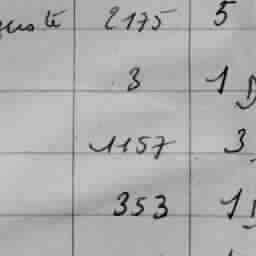 2175 5
3 1
1157 3
353 1